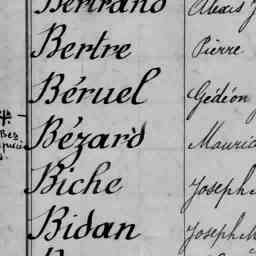 Bertrand Alexis J
Bertre Pierre
Béruel Gédéon
Bézard Mauric
Biche Joseph
Bidan Joseph M